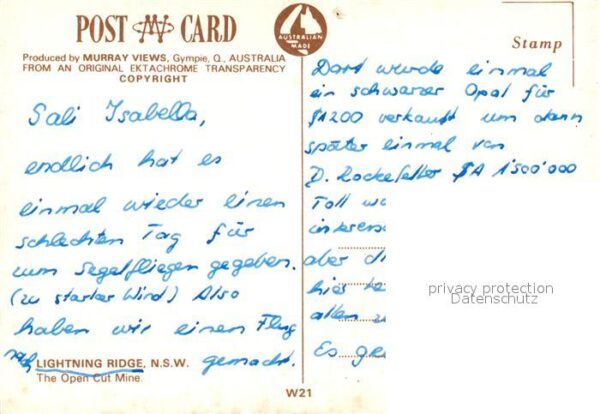 POST CARD
AUSTRALIAN MADE
Produced by MURRAY VIEWS, Gympie, Q., AUSTRALIA
FROM AN ORIGINAL EKTACHROME TRANSPARENCY
COPYRIGHT
Sali Isabella,
endlich hat es
einmal wieder einen
schlechten Tag für
zum Segelfliegen gegeben.
(zu starker Wind) Also
haben wir einen Flug
nach LIGHTNING RIDGE, N.S.W. gemacht.
The Open Cut Mine.
W21
Stamp
Dort wurde einmal
ein schwarzer Opal für
$A200 verkauft um dann
später einmal von
D. Rockefeller $A 1'500'000
Toll
aber
hier
allen
Es
privacy protection
Datenschutz